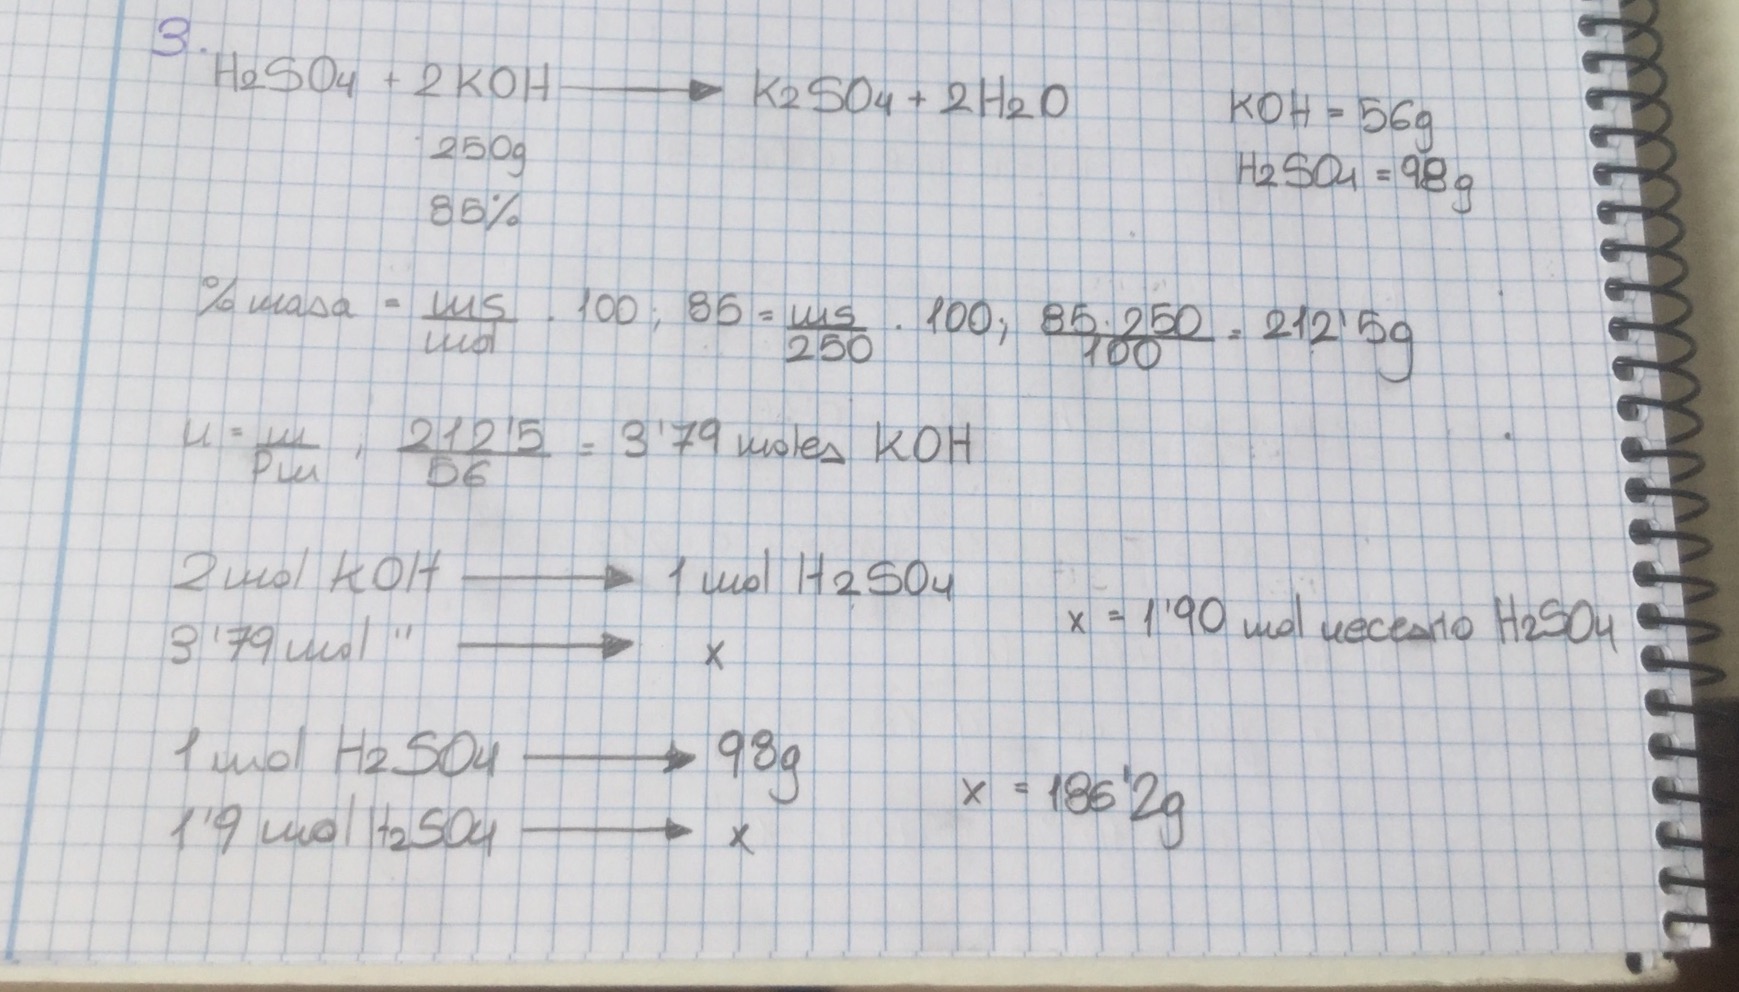 3.
H2SO4 + 2KOH → K2SO4 + 2H2O
KOH = 56g
250g
H2SO4 = 98g
85%
% masa = ms/md · 100; 85 = ms/250 · 100; 85·250/100 = 212'5g
n = m/Pm, 212'5/56 = 3'79 moles KOH
2 mol KOH → 1 mol H2SO4
3'79 mol " → x
x = 1'90 mol necesito H2SO4
1 mol H2SO4 → 98g
1'9 mol H2SO4 → x
x = 186'2g